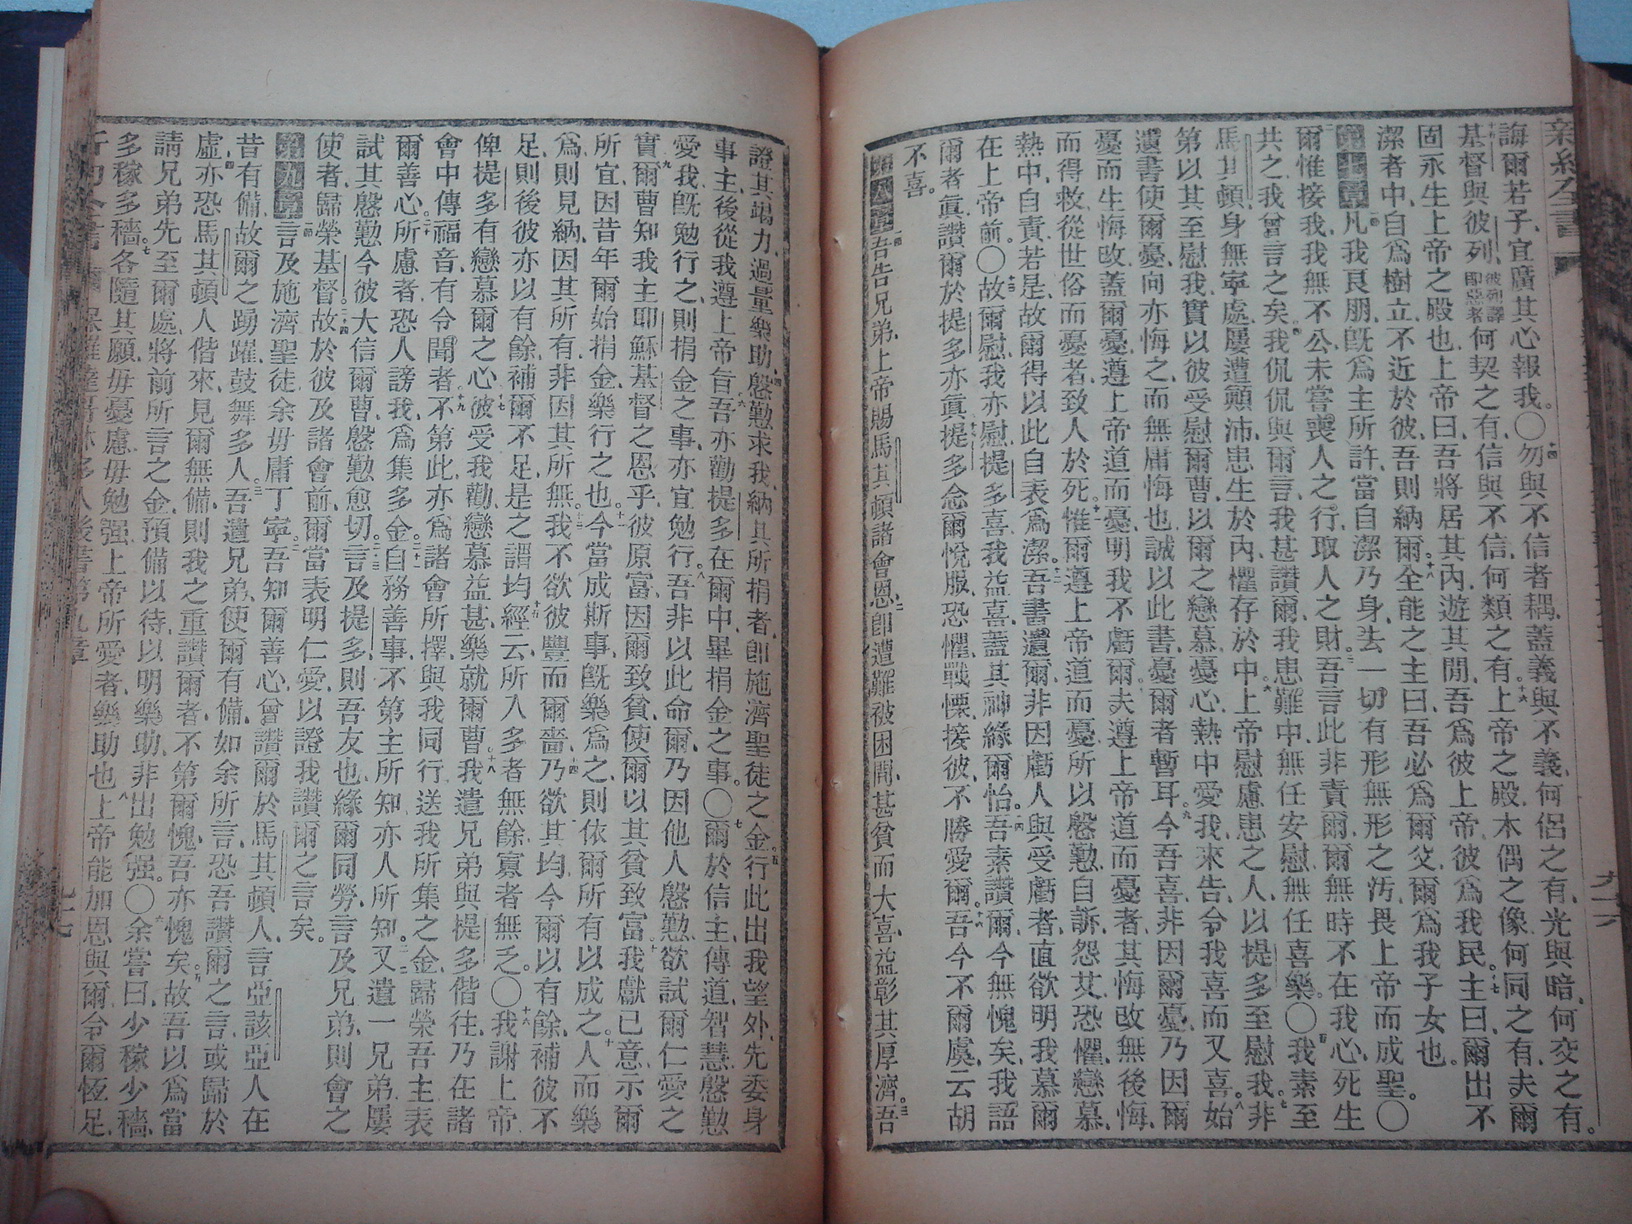 新約全書
誨爾若子、宜廣其心報我。〇勿與不信者耦、蓋義與不義、何侶之有、光與暗、何交之有。
基督與彼列、彼列譯即惡者何契之有、信與不信、何類之有、上帝之殿、木偶之像、何同之有、夫爾
固永生上帝之殿也、上帝曰、吾將居其內、遊其間、吾爲彼上帝、彼爲我民、主曰、爾出不
潔者中、自爲樹立、不近於彼、吾則納爾、全能之主曰、吾必爲爾父、爾爲我子女也。
第七章凡我良朋、旣爲主所許、當自潔乃身、去一切有形無形之汚、畏上帝而成聖。〇
爾惟接我、我無不公、未嘗喪人之行、取人之財、吾言此非責爾、爾無時不在我心、死生
共之、我曾言之矣、我侃侃與爾言、我甚讚爾、我患難中、無任安慰、無任喜樂。〇我素至
馬其頓、身無寧處、屢遭顛沛、患生於內、懼存於中、上帝慰慮患之人、以提多至慰我、非
第以其至慰我、實以彼受慰爾曹、以爾之戀慕憂心、熱中愛我、來告、令我喜而又喜、始
遺書使爾憂、向亦悔之、而無庸悔也、誠以此書、憂爾者暫耳、今吾喜、非因爾憂、乃因爾
憂而生悔改、蓋爾憂、遵上帝道而憂、明我不虧爾、夫遵上帝道而憂者、其悔改無後悔、
而得救、從世俗而憂者、致人於死、惟爾遵上帝道而憂、所以慇懃、自訴、怨艾、恐懼、戀慕、
熱中、自責、若是、故爾得以此自表爲潔、吾書遺爾、非因虧人、與受虧者、直欲明我慕爾
在上帝前。〇故爾慰、我亦慰、提多喜、我益喜、蓋其神緣爾怡、吾素讚爾、今無愧矣、我語
爾者眞、讚爾於提多亦眞、提多念爾悅服、恐懼、戰慄、接彼、不勝愛爾、吾今不爾虞、云胡
不喜。
第八章吾告兄弟、上帝賜馬其頓諸會恩、卽遭難被困間、甚貧而大喜、益彰其厚濟、吾
證其竭力、過量樂助、慇懃求我、納其所捐者、卽施濟聖徒之金、行此出我望外、先委身
事主、後從我、遵上帝旨、吾亦勸提多在爾中、畢捐金之事。〇爾於信主、傳道、智慧、慇懃
愛我、旣勉行之、則捐金之事、亦宜勉行、吾非以此命爾、乃因他人慇懃、欲試爾仁愛之
實、爾曹知我主耶穌基督之恩乎、彼原富、因爾致貧、使爾以其貧致富、我獻己意、示爾
所宜、因昔年爾始捐金、樂行之也、今當成斯事、旣樂爲之、則依爾所有以成之、人而樂
爲、則見納、因其所有、非因其所無、我不欲彼豐而爾嗇、乃欲其均、今爾以有餘、補彼不
足、則後彼亦以有餘、補爾不足、是之謂均、經云、所入多者無餘、寡者無乏。〇我謝上帝、
俾提多有戀慕爾之心、彼受我勸、戀慕益甚、樂就爾曹、我遣兄弟與提多偕往、乃在諸
會中傳福音、有令聞者、不第此、亦爲諸會所擇、與我同行、送我所集之金、歸榮吾主、表
爾善心、所慮者、恐人謗我、爲集多金、自務善事、不第主所知、亦人所知、又遣一兄弟、屢
試其慇懃、今彼大信爾曹、慇懃愈切、言及提多、則吾友也、緣爾同勞、言及兄弟、則會之
使者、歸榮基督、故於彼及諸會前、爾當表明仁愛、以證我讚爾之言矣。
第九章言及施濟聖徒、余毋庸丁寧、吾知爾善心、曾讚爾於馬其頓人、言亞該亞人、在
昔有備、故爾之踴躍、鼓舞多人、吾遣兄弟、使爾有備、如余所言、恐吾讚爾之言、或歸於
虛、亦恐馬其頓人偕來、見爾無備、則我之重讚爾者、不第爾愧、吾亦愧矣、故吾以爲當
請兄弟先至爾處、將前所言之金、預備以待、以明樂助、非出勉强。〇余嘗曰、少稼少穡、
多稼多穡、各隨其願、毋憂慮、毋勉强、上帝所愛者、樂助也、上帝能加恩與爾、令爾恆足、